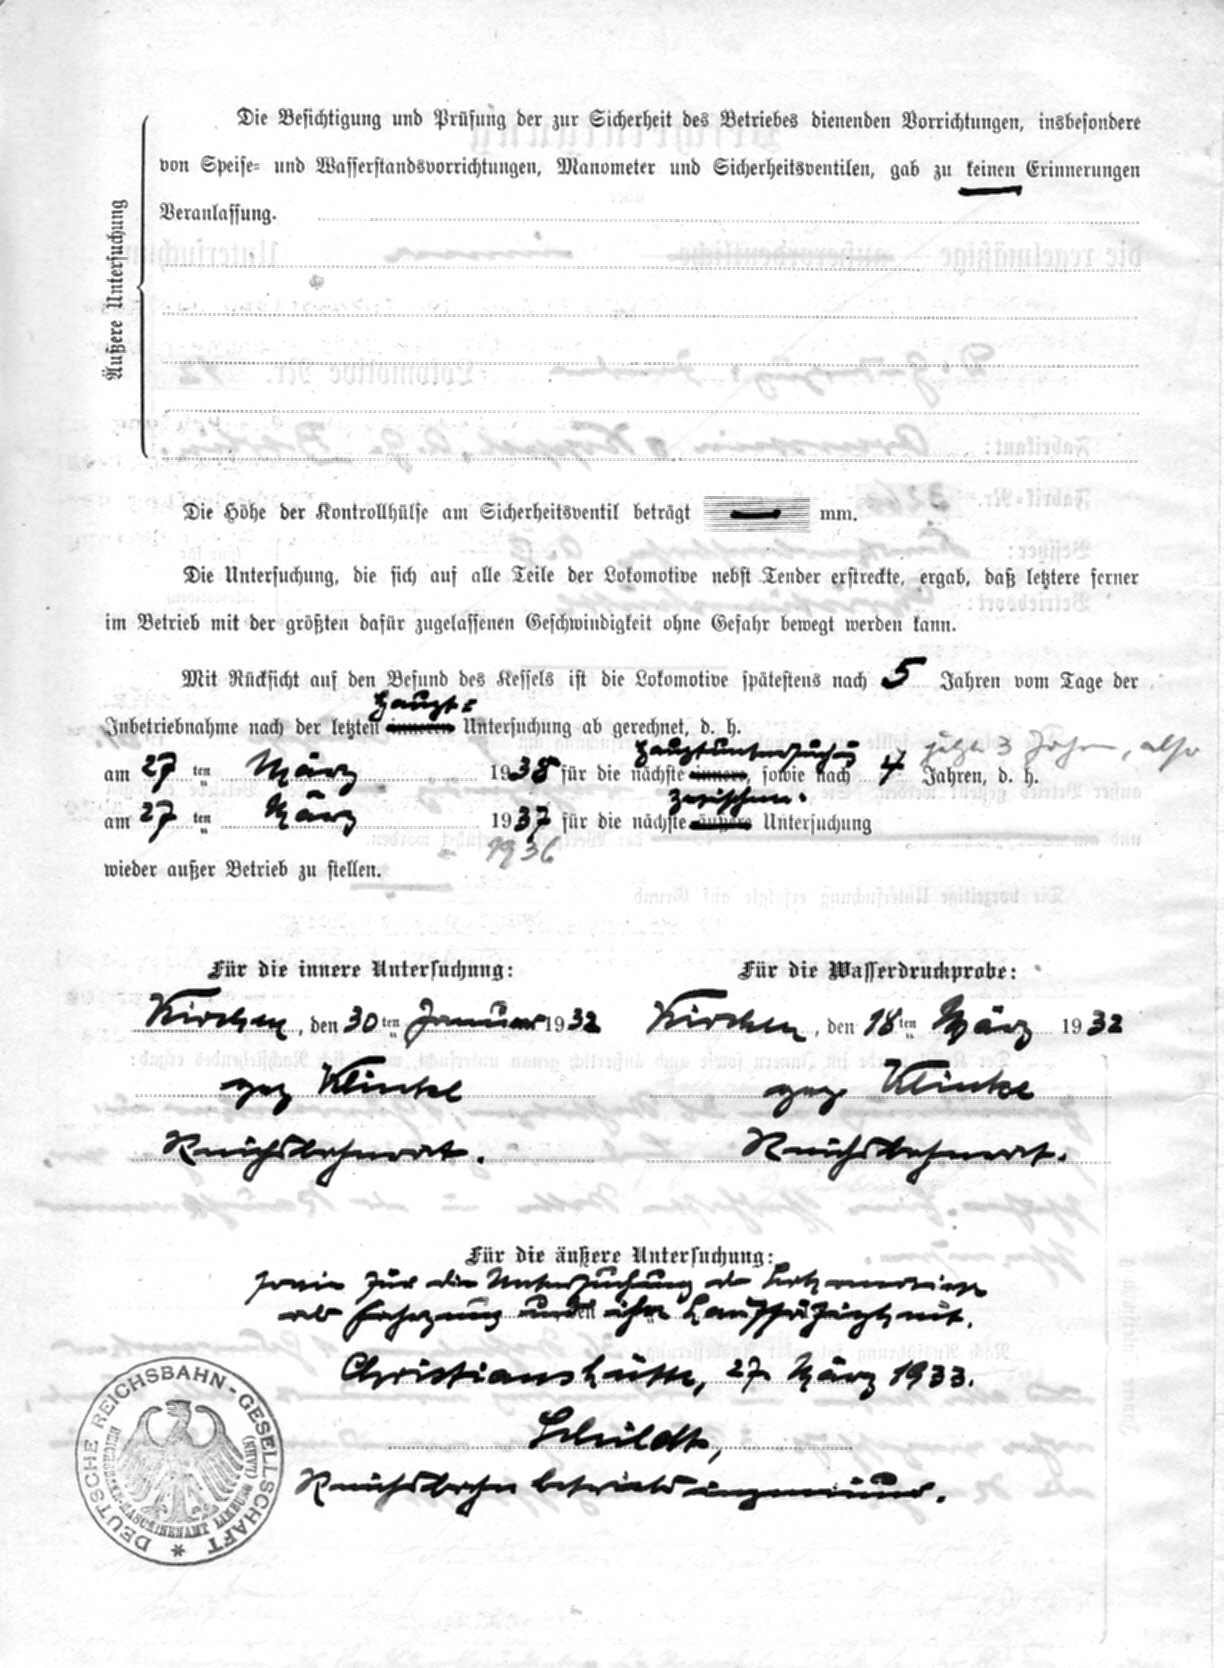 Äußere Untersuchung
Die Besichtigung und Prüfung der zur Sicherheit des Betriebes dienenden Vorrichtungen, insbesondere
von Speise- und Wasserstandsvorrichtungen, Manometer und Sicherheitsventilen, gab zu keinen Erinnerungen
Veranlassung.
Die Höhe der Kontrollhülse am Sicherheitsventil beträgt — mm.
Die Untersuchung, die sich auf alle Teile der Lokomotive nebst Tender erstreckte, ergab, daß letztere ferner
im Betrieb mit der größten dafür zugelassenen Geschwindigkeit ohne Gefahr bewegt werden kann.
Mit Rücksicht auf den Befund des Kessels ist die Lokomotive spätestens nach 5 Jahren vom Tage der
Haupt-
Inbetriebnahme nach der letzten inneren Untersuchung ab gerechnet, d. h.
Hauptuntersuchung jetzt 3 Jahren, also
am 27 ten März 1938 für die nächste innere, sowie nach 4 Jahren, d. h.
Zwischen-
am 27 ten März 1937 für die nächste äußere Untersuchung
1936
wieder außer Betrieb zu stellen.
Für die innere Untersuchung: Für die Wasserdruckprobe:
Kirchen, den 30 ten Januar 1932 Kirchen, den 18 ten März 1932
gez Klinke gez Klinke
Reichsbahnrat. Reichsbahnrat.
Für die äußere Untersuchung:
sowie für die Untersuchung der Lokomotive
als Fahrzeug und ihre Lauffähigkeit.
Christianshütte, 27. März 1933.
Schildt,
Reichsbahnbetriebsingenieur.
DEUTSCHE REICHSBAHN-GESELLSCHAFT
MASCHINENAMT LIMBURG (LAHN)